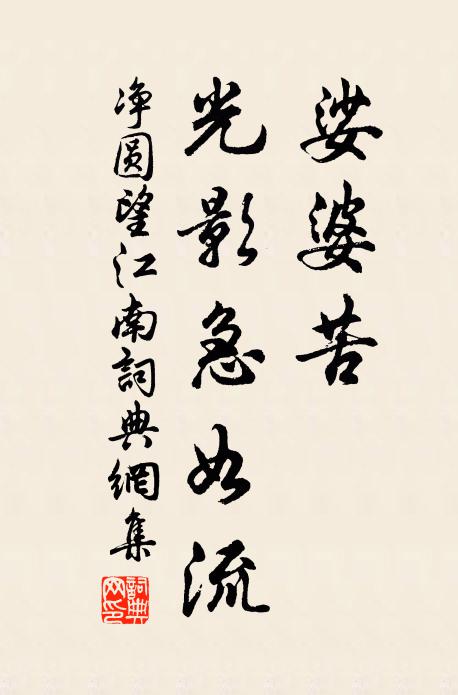 娑婆苦
光影急如流
净圆望江南詞典網集
詞典
网印